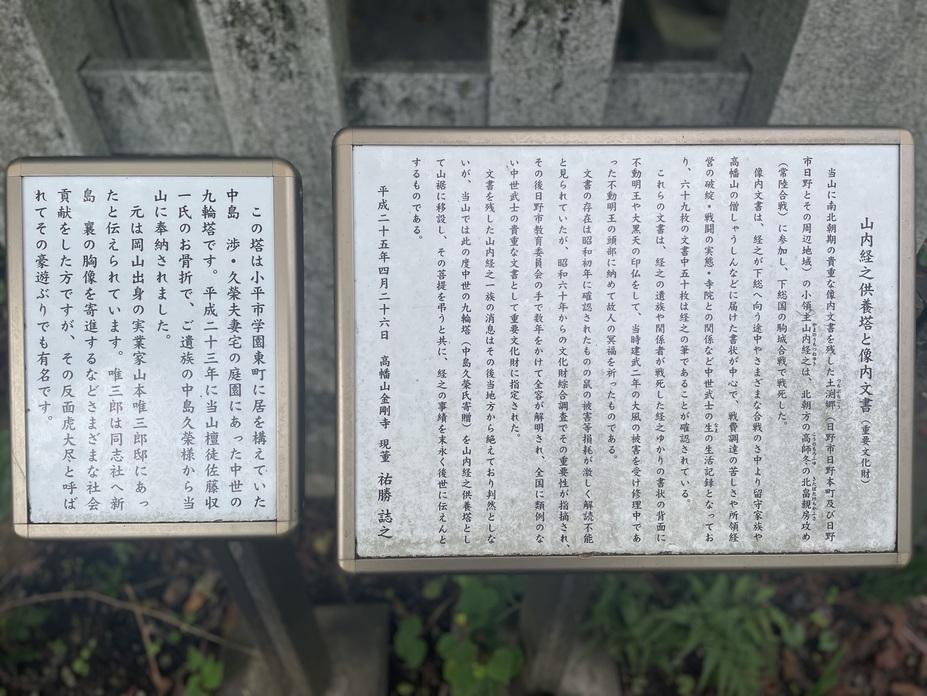 山内経之供養塔と像内文書(重要文化財)
当山に南北朝期の貴重な像内文書を残した土渕郷(日野市日野本町及び日野
市日野とその周辺地域)の小領主山内経之は、北朝方の高師冬の北畠親房攻め
(常陸合戦)に参加し、下総国の駒城合戦で戦死した。
像内文書は、経之が下総へ向う途中やさまざまな合戦のさ中より留守家族や
高幡山の僧しゃうしんなどに届けた書状が中心で、戦費調達の苦しさや所領経
営の破綻・戦闘の実態・寺院との関係など中世武士の生の生活記録となってお
り、六十九枚の文書中五十枚は経之の筆であることが確認されている。
これらの文書は、経之の遺族や関係者が戦死した経之ゆかりの書状の背面に
不動明王や大黒天の印仏をして、当時建武二年の大風の被害を受け修理中であ
った不動明王の頭部に納めて故人の冥福を祈ったものである。
文書の存在は昭和初年に確認されたものの鼠の被害等損耗が激しく解読不能
と見られていたが、昭和六十年からの文化財綜合調査でその重要性が指摘され、
その後日野市教育委員会の手で数年をかけて全容が解明され、全国に類例のな
い中世武士の貴重な文書として重要文化財に指定された。
文書を残した山内経之一族の消息はその後当地方から絶えており判然としな
いが、当山では此の度中世の九輪塔(中島久榮氏寄贈)を山内経之供養塔とし
て山裾に移設し、その菩提を弔うと共に、経之の事績を末永く後世に伝えんと
するものである。
平成二十五年四月二十六日 高幡山金剛寺 現董 祐勝 誌之
この塔は小平市学園東町に居を構えていた
中島 渉・久榮夫妻宅の庭園にあった中世の
九輪塔です。平成二十三年に当山檀徒佐藤収
一氏のお骨折で、ご遺族の中島久榮様から当
山に奉納されました。
元は岡山出身の実業家山本唯三郎邸にあっ
たと伝えられています。唯三郎は同志社へ新
島 襄の胸像を寄進するなどさまざまな社会
貢献をした方ですが、その反面虎大尽と呼ば
れてその豪遊ぶりでも有名です。